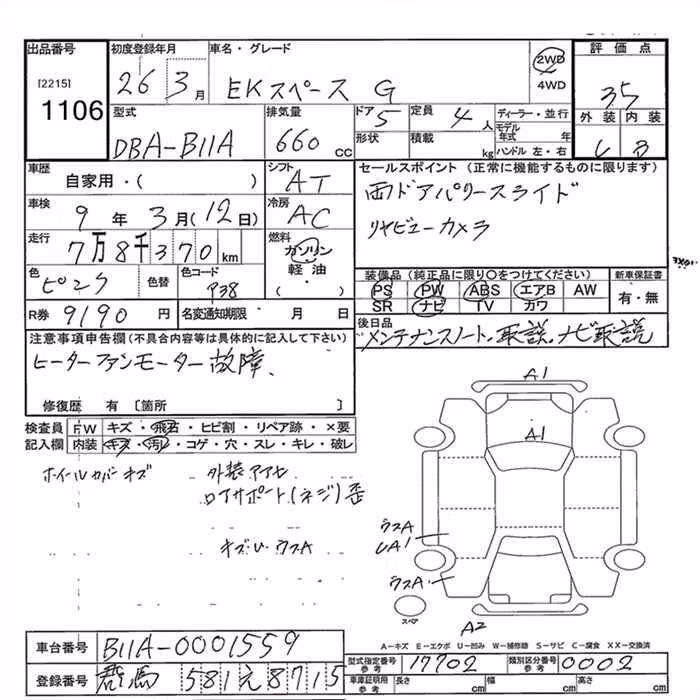 出品番号 初度登録年月 車名・グレード 評価点
[2215] 1106
26 3月 EKスペース G 2WD 4WD 35
型式 排気量 ドア 5 定員 4人 ディーラー・並行 外装 内装
DBA-B11A 660cc 形状 積載 kg モデル年式 年 ハンドル 左・右 C B
車歴 自家用・( ) シフト AT セールスポイント (正常に機能するものに限ります)
車検 9年3月(12日) 冷房 AC 両ドアパワースライド
リヤビューカメラ
走行 7万8千370km 燃料 ガソリン 軽油・( )
色 ピンク 色替 色コード P38
装備品(純正品に限り○をつけてください) 新車保証書
PS PW ABS エアB AW 有・無
SR ナビ TV カワ
R券 9190円 名変通知期限 月 日
後日品 メンテナンスノート、取説、ナビ取説
注意事項申告欄(不具合内容等は具体的に記入して下さい)
ヒーターファンモーター故障、
修復歴 有 〔箇所 〕
検査員記入欄 FW キズ・飛石・ヒビ割・リペア跡・×要
内装 キズ・汚レ・コゲ・穴・スレ・キレ・破レ
ホイールカバーキズ 外装アアセ
ロアサポート(ネジ)歪
キズU ウスA
A1
A1
ウスA
UA1
ウスA
スペア
A2
A-キズ E-エクボ U-凹み W-補修跡 S-サビ C-腐食 XX-交換済
車台番号 B11A-0001559
型式指定番号 参考 17702 類別区分番号 参考 0002
登録番号 群馬 581 え 8715
車庫証明用 参考 長さ cm 幅 cm 高さ cm